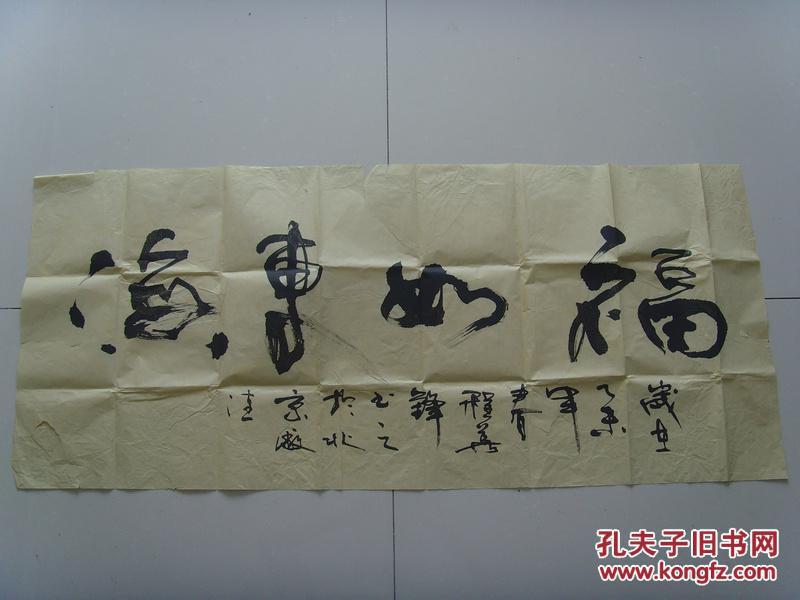 福如東海
歲在
乙未
年
春
程英
鋒
书之
於北
京
淀
孔夫子旧书网
www.kongfz.com